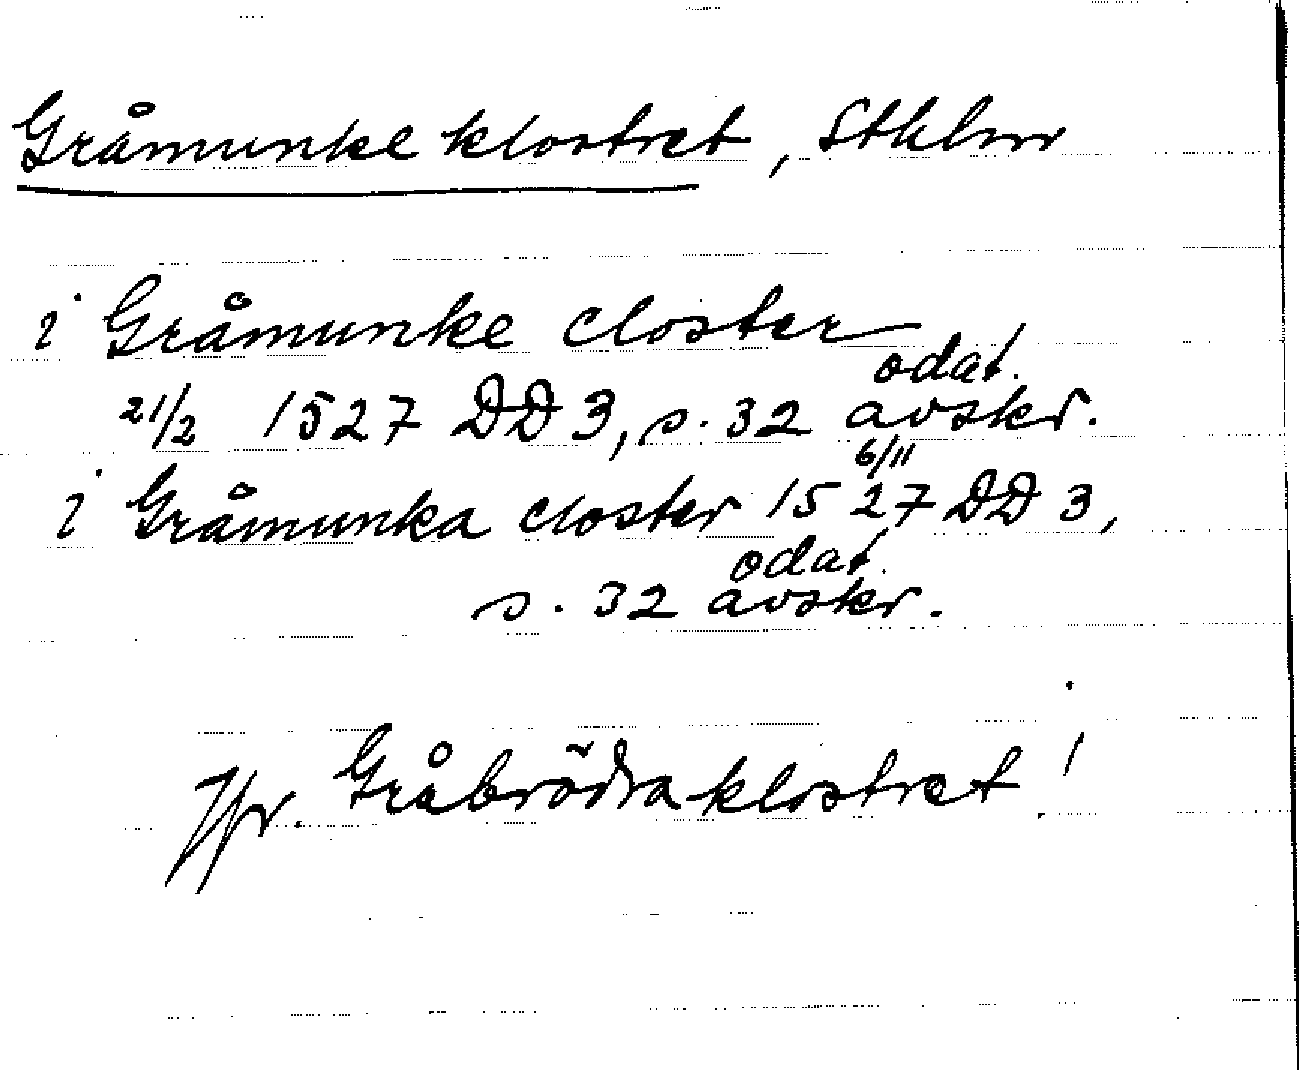 Gråmunkeklostret, Sthlm
i Gråmunke closter
odat.
21/2 1527 DD 3, s. 32 avskr.
6/11
i Gråmunka closter 1527 DD 3,
odat.
s. 32 avskr.
Jfr. Gråbrödraklostret!